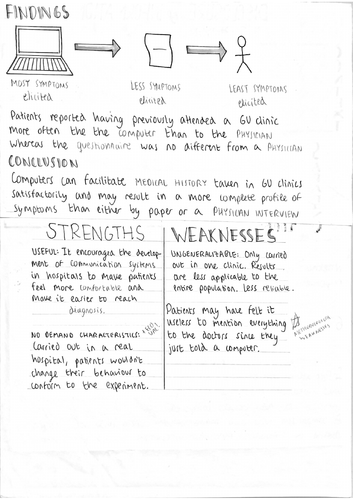 FINDINGS
MOST SYMPTOMS LESS SYMPTOMS LEAST SYMPTOMS
elicited elicited elicited
Patients reported having previously attended a GU clinic
more often the the computer than to the PHYSICIAN
whereas the questionnaire was no different from a PHYSICIAN
CONCLUSION
Computers can facilitate MEDICAL HISTORY taken in GU clinics
satisfactorily and may result in a more complete profile of
symptoms than either by paper or a PHYSICIAN INTERVIEW
STRENGTHS
USEFUL: It encourages the develop-
ment of communication systems
in hospitals to make patients
feel more comfortable and
make it easier to reach
diagnosis.
NO DEMAND CHARACTERISTICS:
Carried out in a real
hospital, patients wouldn't
change their behaviour to
conform to the experiment.
WEAKNESSES
UNGENERALISEABLE: Only carried
out in one clinic. Results
are less applicable to the
entire population, less reliable.
Patients may have felt it
useless to mention everything
to the doctors since they
just told a computer.